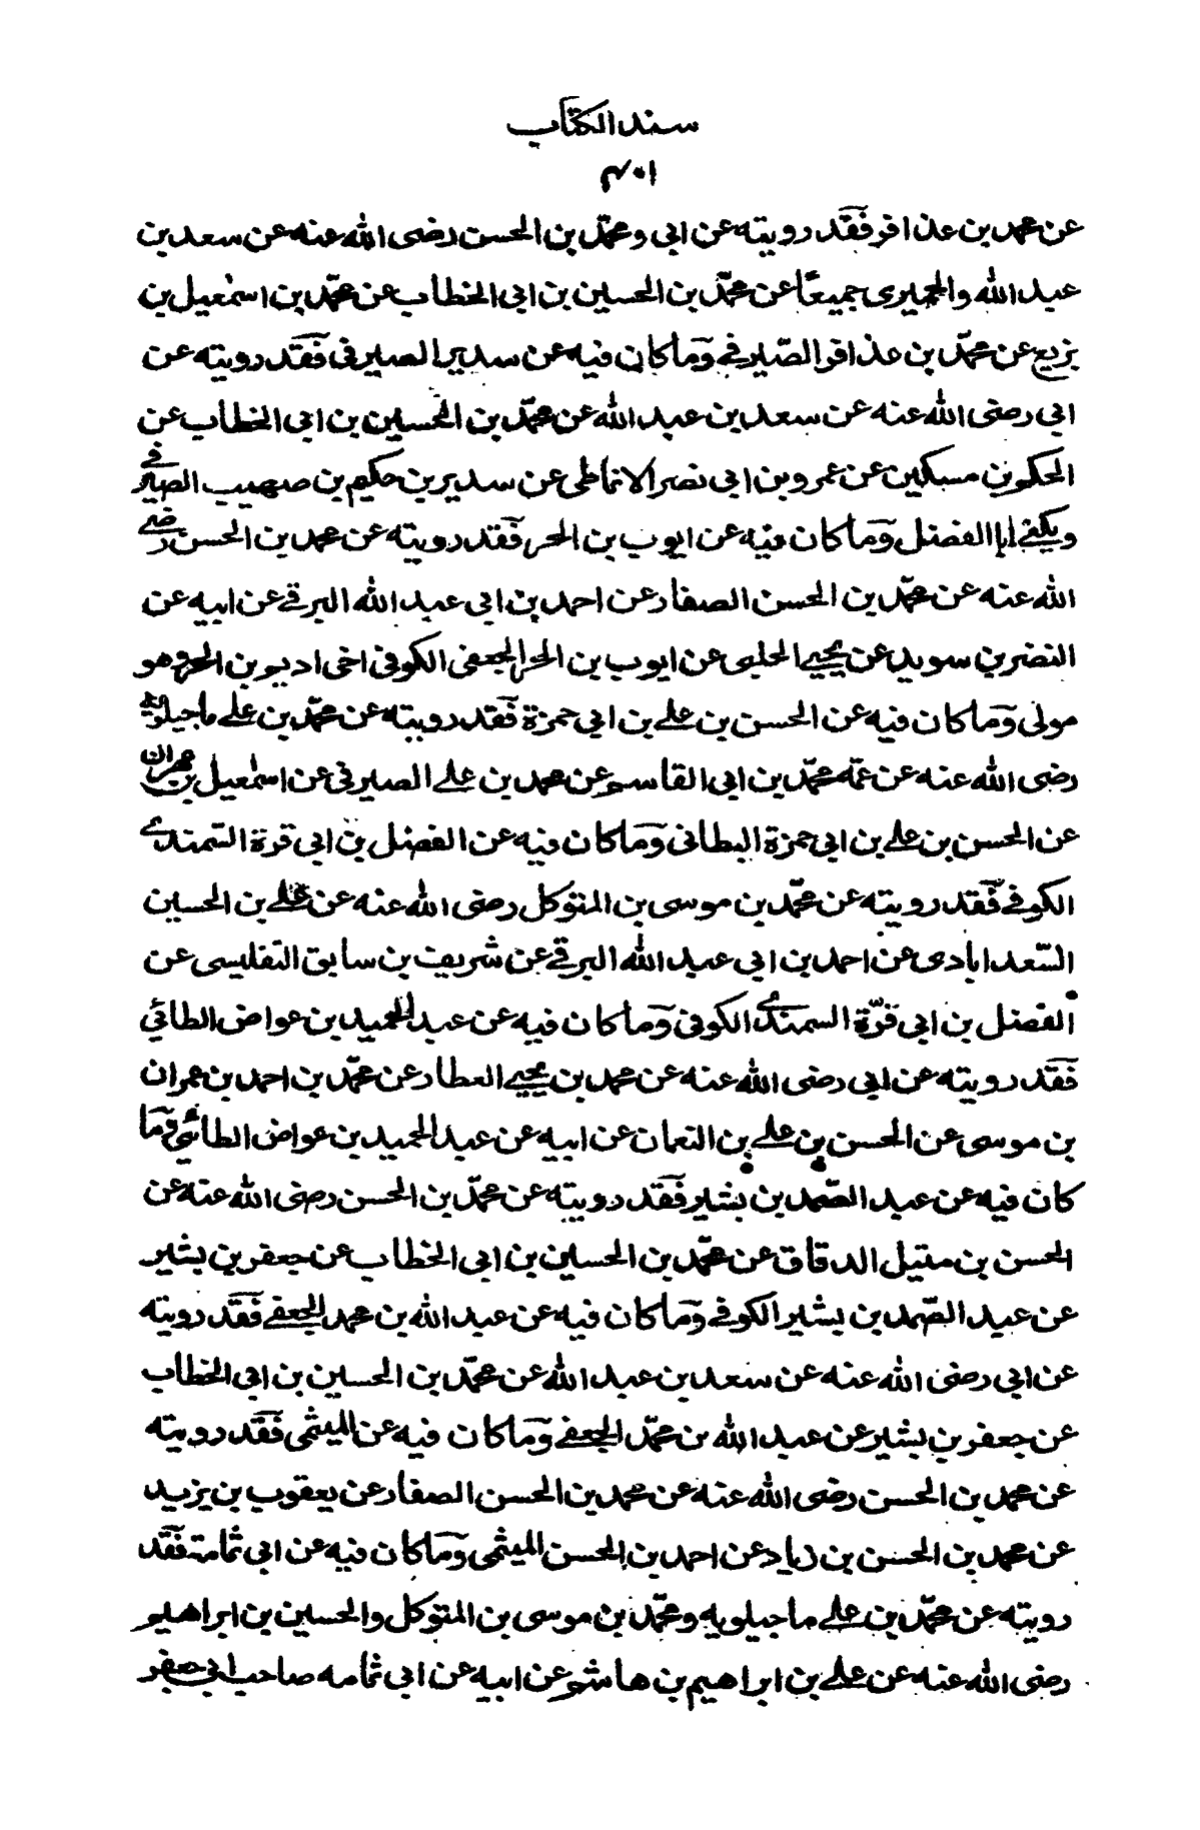 سند الكتاب
۴۰۱
عن محمد بن عذافر فقد رويته عن ابى و محمّد بن الحسن رضى الله عنه عن سعد بن
عبد الله والحميرى جميعًا عن محمّد بن الحسين بن ابى الخطاب عن محمّد بن اسمعيل بن
بزيع عن محمّد بن عذافر الصّيرفى وما كان فيه عن سدير الصيرفى فقد رويته عن
ابى رضى الله عنه عن سعد بن عبد الله عن محمّد بن الحسين بن ابى الخطاب عن
الحكم بن مسكين عن عمرو بن ابى نصر الانماطى عن سدير بن حكيم بن صهيب الصيرفى
ويكنى ابا الفضل وما كان فيه عن ايوب بن الحر فقد رويته عن محمد بن الحسن رضى
الله عنه عن محمّد بن الحسن الصفار عن احمد بن ابى عبد الله البرقى عن ابيه عن
النضر بن سويد عن يحيى الحلبى عن ايوب بن الحر الجعفى الكوفى اخى اديم بن الحر وهو
مولى وما كان فيه عن الحسن بن على بن ابى حمزة فقد رويته عن محمّد بن على ماجيلويه
رضى الله عنه عن عمّه محمّد بن ابى القاسم عن محمد بن على الصيرفى عن اسمعيل بن مهران
عن الحسن بن على بن ابى حمزة البطائنى وما كان فيه عن الفضل بن ابى قرة السّمندى
الكوفى فقد رويته عن محمّد بن موسى بن المتوكل رضى الله عنه عن على بن الحسين
السّعدابادى عن احمد بن ابى عبد الله البرقى عن شريف بن سابق التفليسى عن
الفضل بن ابى قرّة السمندى الكوفى وما كان فيه عن عبد الحميد بن عواض الطائى
فقد رويته عن ابى رضى الله عنه عن محمد بن يحيى العطار عن محمّد بن احمد بن عمران
بن موسى عن الحسن بن على بن النعمان عن ابيه عن عبد الحميد بن عواض الطائى وما
كان فيه عن عبد الصّمد بن بشير فقد رويته عن محمّد بن الحسن رضى الله عنه عن
الحسن بن متيل الدقاق عن محمّد بن الحسين بن ابى الخطاب عن جعفر بن بشير
عن عبد الصّمد بن بشير الكوفى وما كان فيه عن عبد الله بن محمد الجعفى فقد رويته
عن ابى رضى الله عنه عن سعد بن عبد الله عن محمّد بن الحسين بن ابى الخطاب
عن جعفر بن بشير عن عبد الله بن محمّد الجعفى وما كان فيه عن الميثمى فقد رويته
عن محمد بن الحسن رضى الله عنه عن محمد بن الحسن الصفار عن يعقوب بن يزيد
عن محمد بن الحسن بن زياد عن احمد بن الحسن الميثمى وما كان فيه عن ابى ثمامة فقد
رويته عن محمّد بن على ماجيلويه و محمّد بن موسى بن المتوكل والحسين بن ابراهيم
رضى الله عنه عن على بن ابراهيم بن هاشم عن ابيه عن ابى ثمامه صاحب ابى جعفر